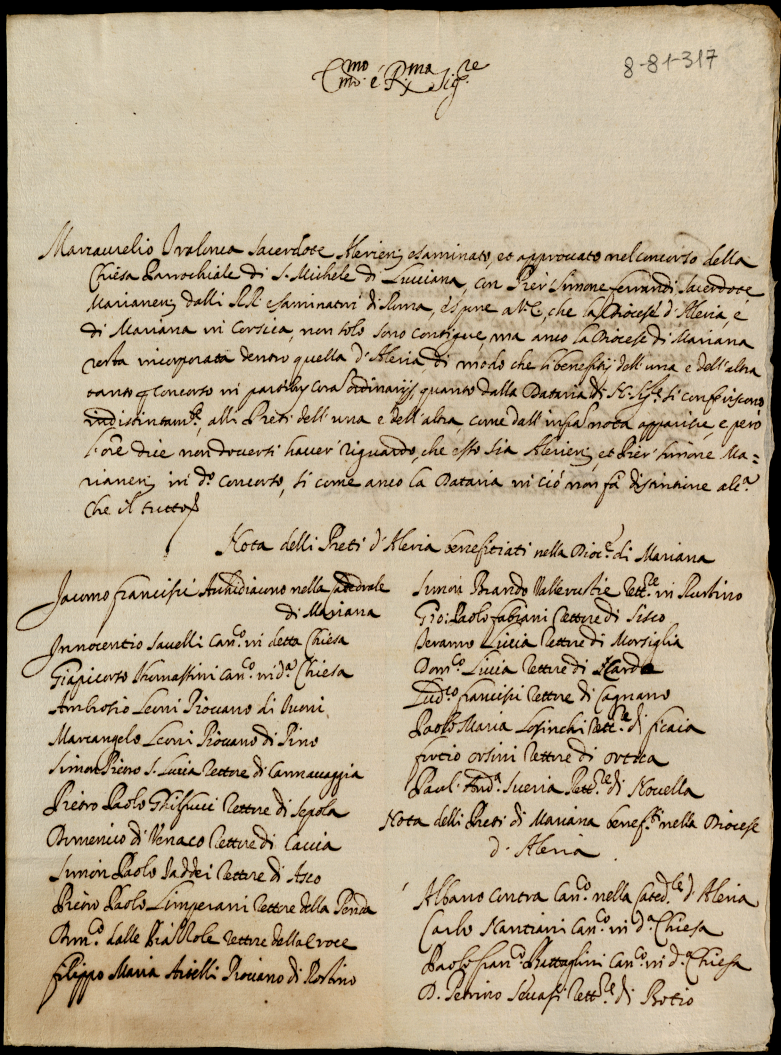 8-81-317
Em.mo é R.mo Sig.re
Marcaurelio sacerdote Alerien; esaminato, et approuato nel concorso della
Chiesa Parrochiale di S. Michele di Lucciana, con Pier Simone ferrandi sacerdote
Marianen; dalli RR. esaminatori di Roma, espone che la Diocese d'Aleria, é
di Mariana in Corsica, non solo sono contigue, ma anco la Diocese di Mariana
resta incorporata dentro quella d'Aleria di modo che li benefitij dell'una e dell'altra
tanto concorso in partibus cora ordinarijs, quanto dalla Dataria di N. Sig.re si conferiscono
indistintam.te, alli Preti dell'una e dell'altra, come dall'infra nota apparisce, e però
l'ore dice non douersi hauer riguardo, che esso sia Alerien; et Pier simone Ma=
rianen; in d.o concorso, si come anco la Dataria in ció non fá distintione alc.a
che il tutto
Nota delli Preti d'Aleria benefitiati nella Dioc.e di Mariana
Jacomo francischi Archidiacono nella Catedrale
di Mariana
Innocentio Sauelli Can.co in detta Chiesa
Thomassini Can.co in d.a Chiesa
Ambrosio Leoni Piouano di
Marcangelo Leoni Piouano di Pino
Simon Pietro S. Lucia Rettore di Cannauaggia
Pietro Paolo Rettore di
Domenico di Venaco Rettore di Caccia
Simon Paolo Taddei Rettore di Asco
Pietro Paolo Limperani Rettore della Penta
Dom.co dalle Piazzole Rettore della Croce
filippo Maria Piouano di Rostino
Simon Brando Rett.re in Rustino
Gio: Paolo fabiani Rettore di Sisco
Teramo Lucia Rettore di Morsiglia
Dom.co Lucia Rettore di
Lud.co francischi Rettore di Cagnano
Paolo Maria Rett.re di ficaia
furtio orsini Rettore di ortica
Paul' And.a Sueria Rett.re di Nouella
Nota delli Preti di Mariana benef.ti nella Diocese
d'Aleria
Albano Contra Can.co nella Cated.le d'Aleria
Carlo Can.co in d.a Chiesa
Paolo fran.co Battaglini Can.co in d.a Chiesa
D. Petrino Rett.re di